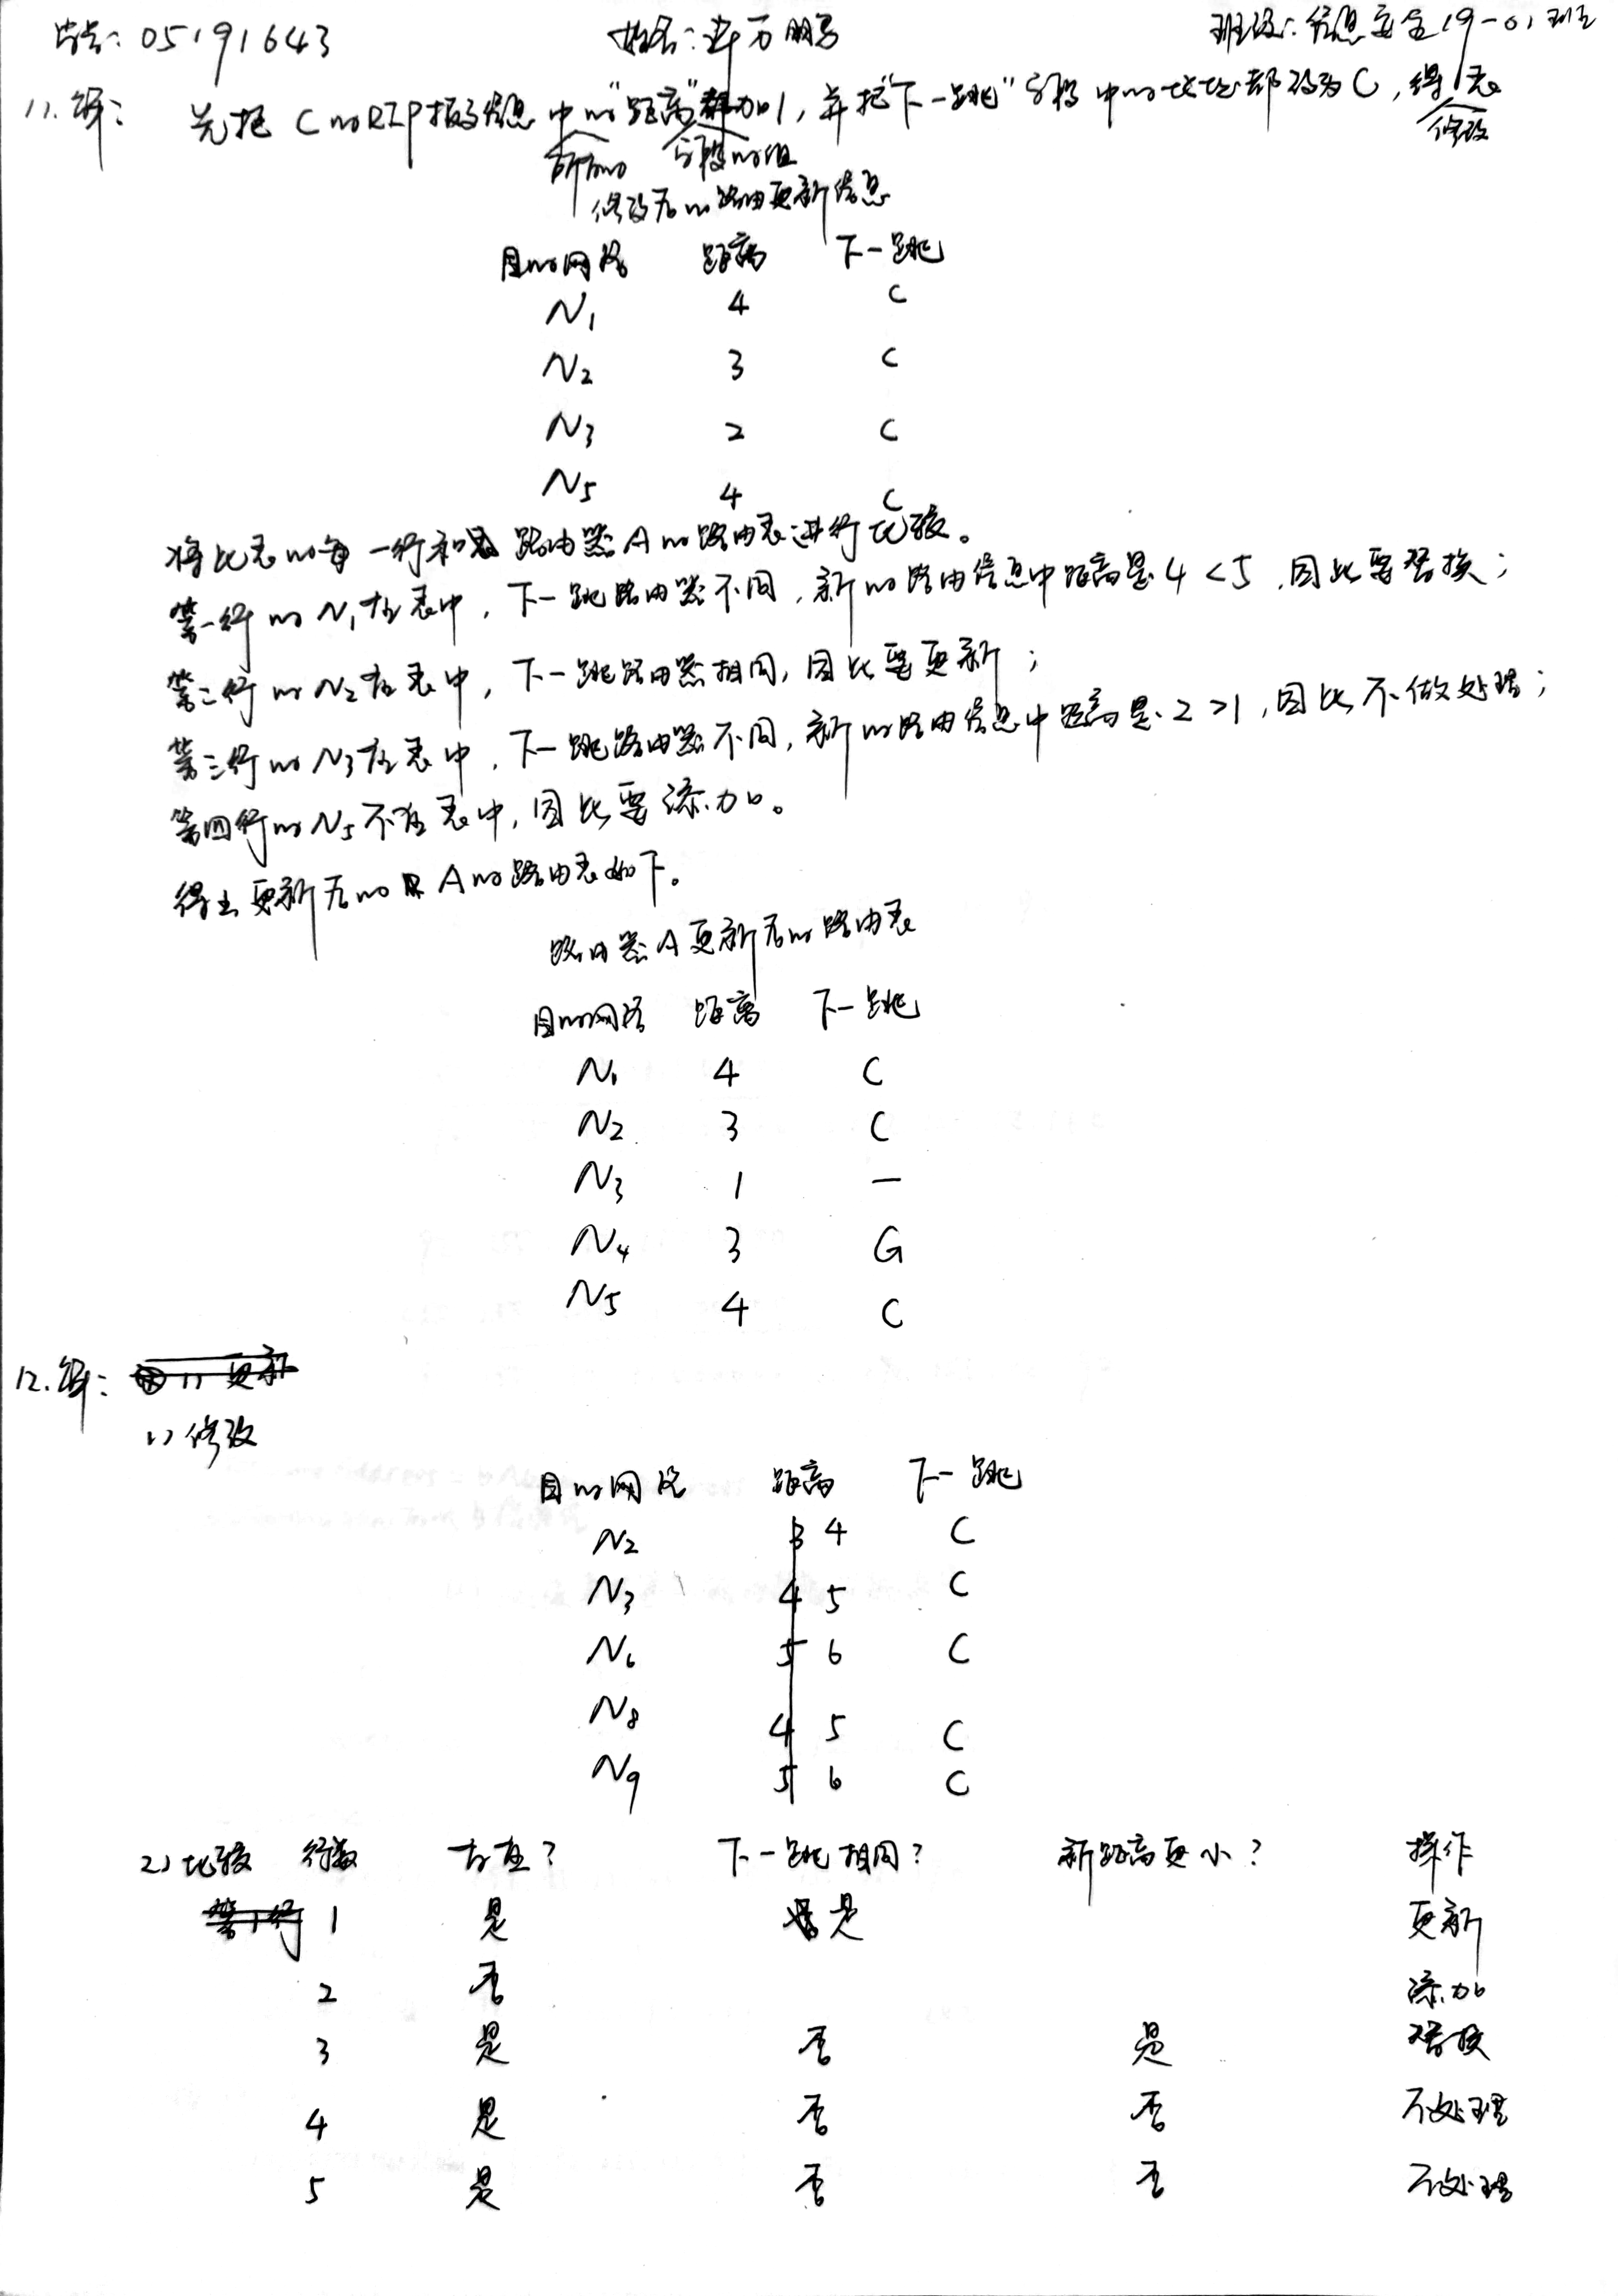 学号: 05191643 姓名: 万鹏 班级: 信息安全19-01班
11.解: 先把C的RIP报文信息中的所有的"距离"字段的值加1, 并把"下一跳"字段中的地址都改为C, 得修改表
修改后的路由更新信息
目的网络 距离 下一跳
N1 4 C
N2 3 C
N3 2 C
N5 4 C
将此表的每一行和路由器A的路由表进行比较。
第一行的N1在表中, 下一跳路由器不同, 新的路由信息中距离是4<5, 因此要替换;
第二行的N2在表中, 下一跳路由器相同, 因此要更新;
第三行的N3在表中, 下一跳路由器不同, 新的路由信息中距离是2>1, 因此不做处理;
第四行的N5不在表中, 因此要添加。
得出更新后的A的路由表如下。
路由器A更新后的路由表
目的网络 距离 下一跳
N1 4 C
N2 3 C
N3 1 —
N4 3 G
N5 4 C
12.解: 1) 更新
1) 修改
目的网络 距离 下一跳
N2 3 4 C
N3 4 5 C
N6 5 6 C
N8 4 5 C
N9 5 6 C
2) 比较 行数 存在? 下一跳相同? 新距离更小? 操作
第1行 1 是 是 更新
2 否 添加
3 是 否 是 替换
4 是 否 否 不处理
5 是 否 否 不处理